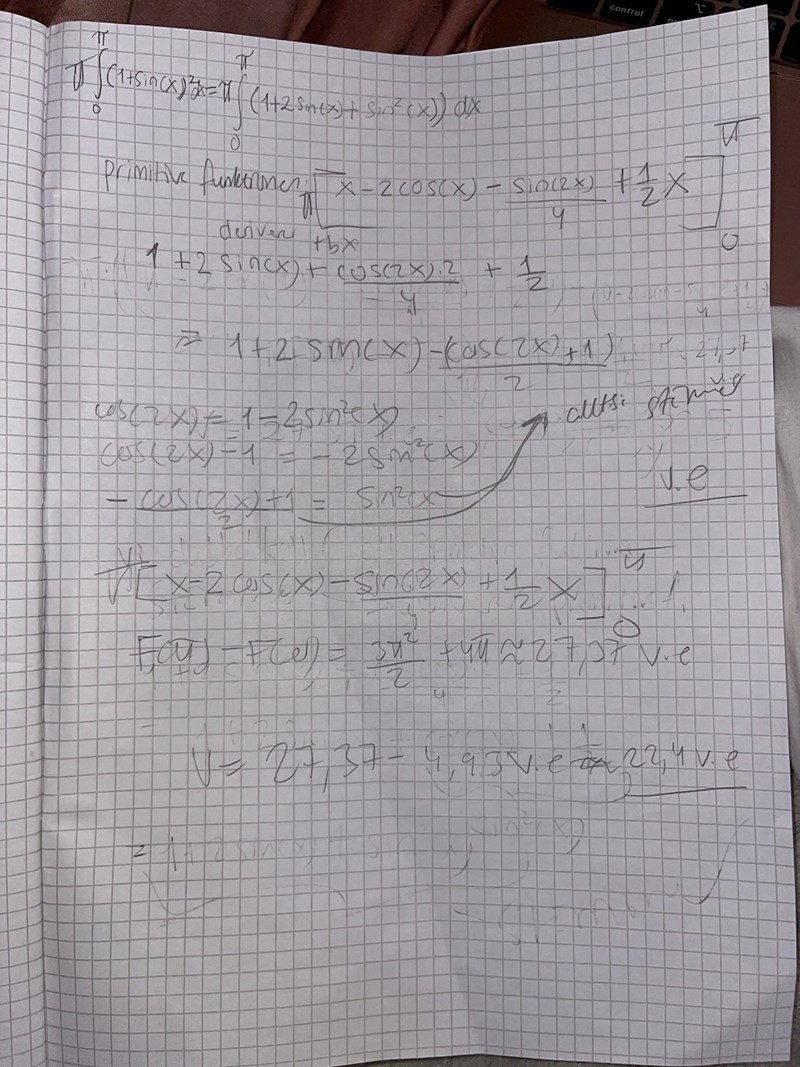 control
π∫₀^π (1+sin(x))²dx = π∫₀^π (1+2sin(x)+sin²(x)) dx
primitive funktionen: π[x-2cos(x) - sin(2x)/4 + 1/2 x]₀^π
1+2 sin(x) + cos(2x)·2/4 + 1/2
⇒ 1+2 sin(x) -(cos(2x)+1)/2
cos(2x) = 1-2sin²(x)
cos(2x)-1 = -2sin²(x)
-cos(2x)+1/2 = sin²x
v.e
π[x-2cos(x) - sin(2x)/4 + 1/2 x]₀^π
F(π) - F(0) = 3π²/2 + 4π ≈ 27,37 v.e
V = 27,37 - 4,93 v.e ≈ 22,4 v.e